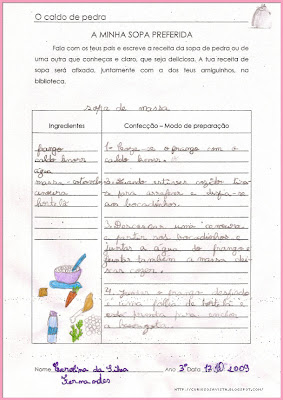 O caldo de pedra
A MINHA SOPA PREFERIDA
Fala com os teus pais e escreve a receita da sopa de pedra ou de
uma outra que conheças e claro, que seja deliciosa. A tua receita de
sopa será afixada, juntamente com a dos teus amiguinhos, na
biblioteca.
sopa de massa
Ingredientes
Confecção – Modo de preparação
frango
caldo knorr
água
massa
cenoura
hortelã
1º Coze-se o frango com o
caldo knorr.
2º Quando estiver cozido tira-
se para arrefecer e desfia-se
aos bocadinhos.
3º Descascar uma cenoura
e partir aos bocadinhos e
juntar à água do frango e
juntar também a massa dei-
xar cozer.
4º Juntar o frango desfiado
e uma folha de hortelã e
está pronta para encher
a barriguita.
Nome: Carolina da Silva
Fernandes
Ano: 3º Data: 2009
HTTP://CURIOSOAVISTA.BLOGSPOT.COM/